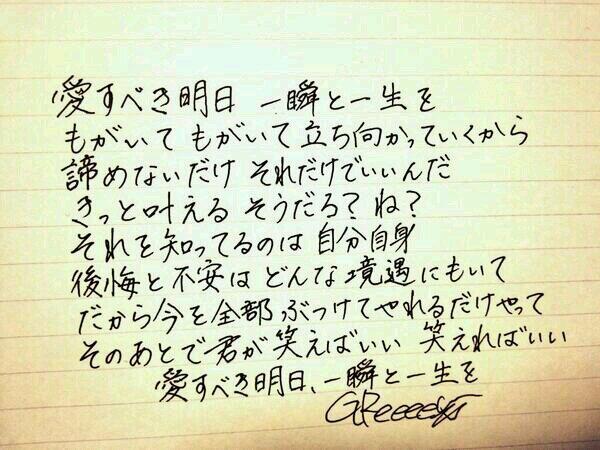 愛すべき明日 一瞬と一生を
もがいて もがいて立ち向かっていくから
諦めないだけ それだけでいいんだ
きっと叶える そうだろ？ね？
それを知ってるのは 自分自身
後悔と不安は どんな境遇にもいて
だから今を全部 ぶつけてやれるだけやって
そのあとで君が笑えばいい 笑えればいい
愛すべき明日、一瞬と一生を
GReeeeN